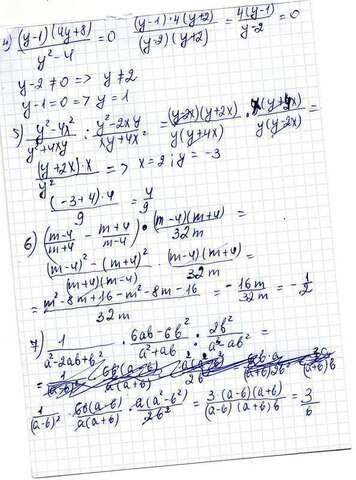 4) (y-1)(4y+8)/(y²-4) = 0 (y-1)·4(y+2)/((y-2)(y+2)) = 4(y-1)/(y-2) = 0
y-2≠0 => y≠2
y-1=0 => y=1
5) (y²-4x²)/(y²+4xy) : (y²-2xy)/(xy+4x²) = (y-2x)(y+2x)/(y(y+4x)) · x(y+4x)/(y(y-2x)) =
(y+2x)·x/y² => x=2; y=-3
(-3+4)·4/9 = 4/9
6) ((m-4)/(m+4) - (m+4)/(m-4)) · (m-4)(m+4)/32m =
((m-4)²-(m+4)²)/((m+4)(m-4)) · (m-4)(m+4)/32m =
= (m²-8m+16-m²-8m-16)/32m = -16m/32m = -1/2
7) 1/(a²-2ab+b²) · (6ab-6b²)/(a²+ab) : 2b²/(a³-ab²) =
1/(a-b)² · 6b(a-b)/(a(a+b)) · a(a²-b²)/2b² = 3(a-b)(a+b)/((a-b)(a+b)b) = 3/b